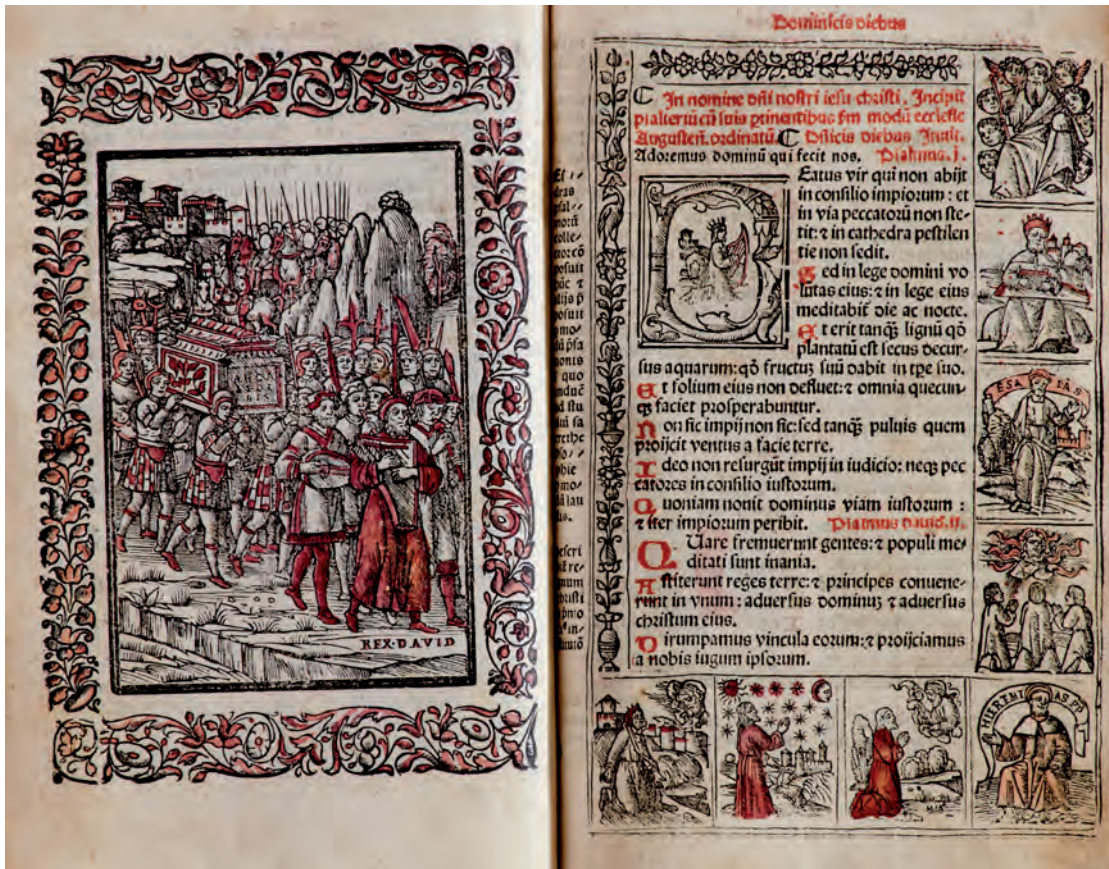 REX·DAVID
Dominicis diebus
In nomine dñi nostri iesu christi. Incipit
psalteriū cū suis ptinentibus sm modū ecclesie
Augusteñ. ordinatū. Dñicis diebus Inuit.
Adoremus dominū qui fecit nos. Psalmus. j.
Eatus vir qui non abijt
in consilio impiorum : et
in via peccatorū non ste-
tit: ⁊ in cathedra pestilen
tie non sedit.
Sed in lege domini vo
lūtas eius: ⁊ in lege eius
meditabit̄ die ac nocte.
Et erit tanq̄ȝ lignū qō
plantatū est secus decur-
sus aquarum: qō fructuȝ suū dabit in tpe suo.
Et folium eius non defluet: ⁊ omnia quecun-
qȝ faciet prosperabuntur.
Non sic impij non sic: sed tanq̄ȝ puluis quem
proijcit ventus a facie terre.
Ideo non resurgūt impij in iudicio: neqȝ pec
catores in consilio iustorum.
Quoniam nouit dominus viam iustorum :
⁊ iter impiorum peribit. Psalmus dauid. ij.
QUare fremuerunt gentes: ⁊ populi me-
ditati sunt inania.
Astiterunt reges terre: ⁊ principes conuene-
runt in vnum : aduersus dominuȝ ⁊ aduersus
christum eius.
Dirumpamus vincula eorum: ⁊ proijciamus
a nobis iugum ipsorum.
ESAIAS
HIEREMIAS